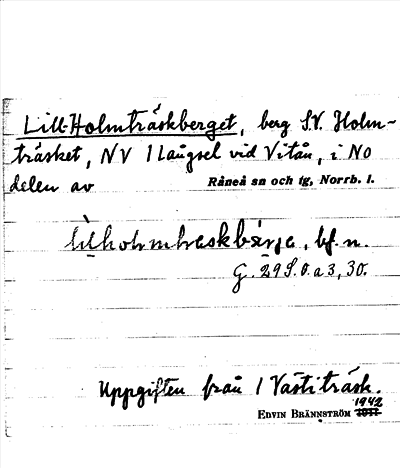 Lill-Holmträskberget, berg S.V. Holm-
träsket, NV 1 Långsel vid Vitån, i NO
delen av Råneå sn och tg, Norrb. l.
bf. n.
G. 29 S.O. a 3, 30.
Uppgiften från 1 Västiträsk.
1942
EDVIN BRÄNNSTRÖM 1941